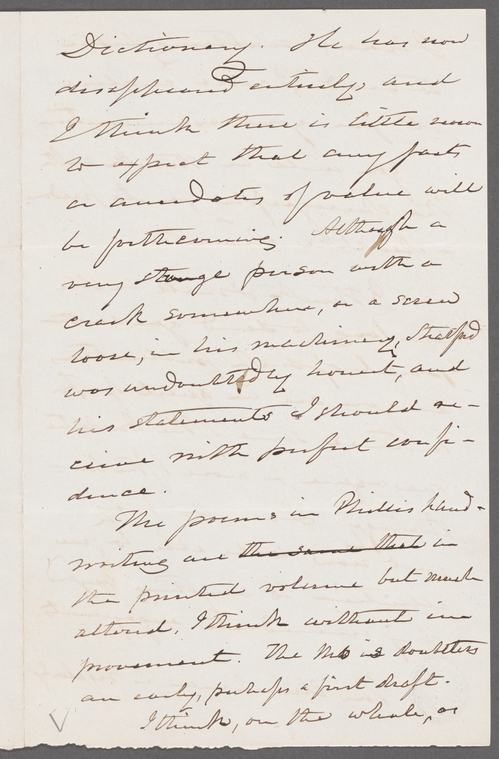 Dictionary. He has now
disappeared entirely, and
I think there is little now
to expect that any facts
or anecdotes of value will
be forthcoming. Although a
very strange person with a
crack somewhere, or a screw
loose, in his machinery,
was undoubtedly honest, and
his statements I should re-
ceive with perfect confi-
dence.
The poems in Phillis hand-
writing are the same that in
the printed volume but much
altered, I think without im
provement. The Ms is doubtless
an early, perhaps a first draft.
I think, on the whole, as